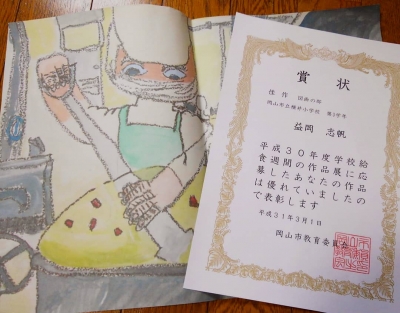 賞状
佳作 図画の部
岡山市立 小学校 第3学年
益岡 志帆
平成30年度学校給
食週間の作品展に応
募したあなたの作品
は優れていましたの
で表彰します
平成31年3月1日
岡山市教育委員会